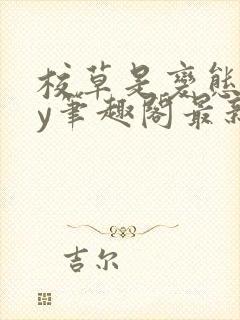 校草是变態
y筆趣阁最新
吉尔